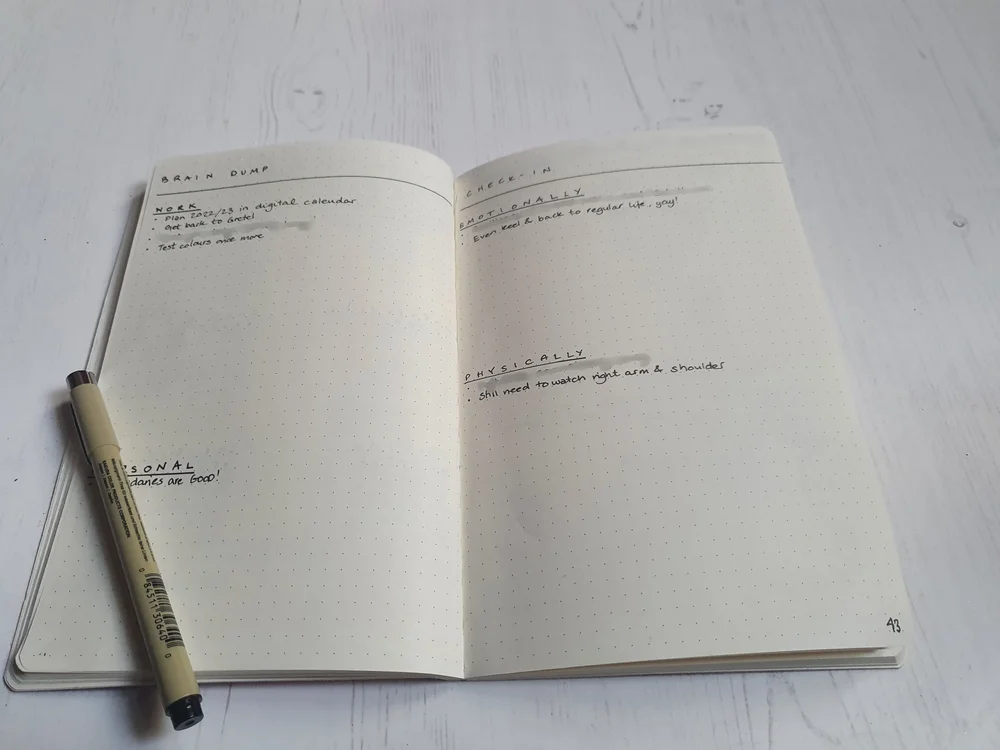 BRAIN DUMP
WORK
• Plan 2022/23 in digital calendar
• Get back to Gretel
•
• Test colours once more
SONAL
daries are GOOD!
CHECK-IN
EMOTIONALLY
•
• Even keel & back to regular life, yay!
PHYSICALLY
•
• Still need to watch right arm & shoulder
43
0 84511 30640 0